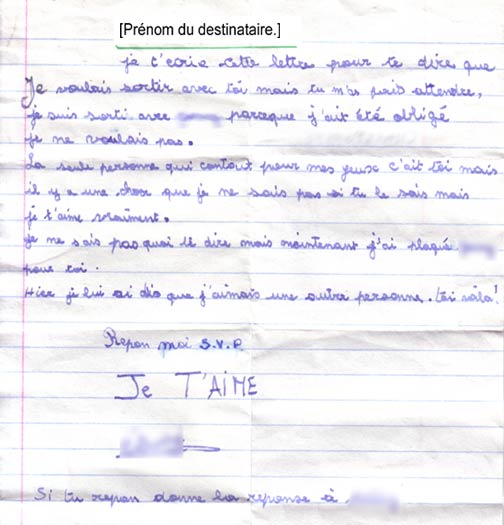 [Prénom du destinataire.]
je t'écrie cette lettre pour te dire que
Je voulais sortir avec toi mais tu m'as fait attendre,
je suis sorti avec parceque j'ait été obligé
je ne voulais pas.
La seule personne qui contout pour mes yeux c'ait toi mais
il y a une chose que je ne sais pas si tu le sais mais
je t'aime vraiment.
Je ne sais pas quoi te dire mais maintenant j'ai plaqué
pour toi.
Hier je lui ai dis que j'aimais une autre personne. toi voila!
Repon moi S.V.P.
Je T'AiME
Si tu repon donne la reponse à